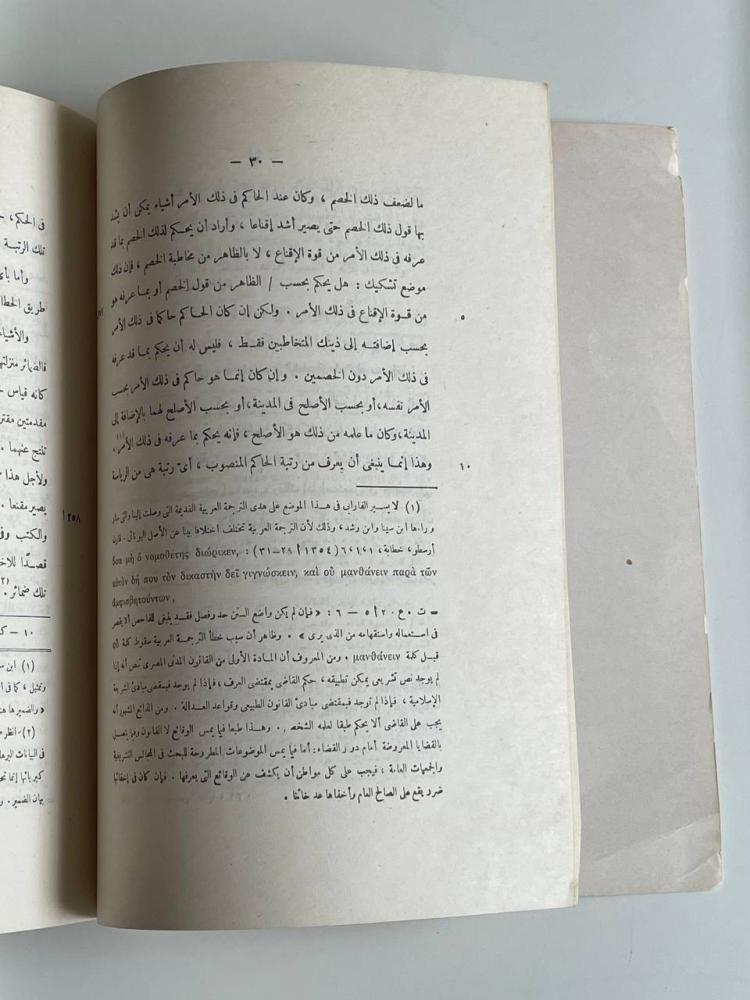 — ٣٠ —
ما لضعف ذلك الخصم ، وكان عند الحاكم فى ذلك الأمر أشياء يمكن أن يشد
بها قول ذلك الخصم حتى يصير أشد إقناعا ، وأراد أن يحكم لذلك الخصم بما قد
عرفه فى ذلك الأمر من قوة الإقناع ، لا بالظاهر من مخاطبة الخصم ، فإن ذلك
موضع تشكيك : هل يحكم بحسب / الظاهر من قول الخصم أو بما عرفه هو
من قوة الإقناع فى ذلك الأمر . ولكن إن كان الحاكم حاكما فى ذلك الأمر ٥
بحسب إضافته إلى ذينك المتخاطبين فقط ، فليس له أن يحكم بما قد عرفه
فى ذلك الأمر دون الخصمين . وإن كان إنما هو حاكم فى ذلك الأمر بحسب
الأمر نفسه، أو بحسب الأصلح فى المدينة، أو بحسب الأصلح لهما بالإضافة إلى
المدينة، وكان ما علمه من ذلك هو الأصلح ، فإنه يحكم بما عرفه فى ذلك الأمر(١).
وهذا إنما ينبغى أن يعرف من رتبة الحاكم المنصوب ، أىّ رتبة هى من الرياسة ١٠
(١) لا يسير الفارابى فى هذا الموضع على هدى الترجمة العربية القديمة التى وصلت إلينا والتى سار
وراءها ابن سينا وابن رشد، وذلك لأن الترجمة العربية تختلف اختلافا بينا عن الأصل اليونانى . قارن
أرسطو، خطابة، ١، ١، ٦ (١٣٥٤ أ ٢٨-٣١) : ὅσα μὴ ὁ νομοθέτης διώρικεν,
αὐτὸν δή που τὸν δικαστὴν δεῖ γιγνώσκειν, καὶ οὐ μανθάνειν παρὰ τῶν
ἀμφισβητούντων,
= ت . ع . ٢ أ ٥ — ٦ : « فإن لم يكن واضع السنن حد وفصل فقد ينبغى للفاحص ألا يقصر
فى استعماله واستفهامه من الذى يرى » . وظاهر أن سبب خطأ الترجمة العربية سقوط كلمة οὐ
قبل كلمة μανθάνειν . ومن المعروف أن المادة الأولى من القانون المدنى المصرى نص أنه إذا
لم يوجد نص تشريعى يمكن تطبيقه ، حكم القاضى بمقتضى العرف، فإذا لم يوجد فبمقتضى مبادئ الشريعة
الإسلامية ، فإذا لم توجد فبمقتضى مبادئ القانون الطبيعى وقواعد العدالة . ومن الذائع المشهور أنه
يجب على القاضى ألا يحكم طبقا لعلمه الشخصى . وهذا طبعا فيما يمس الوقائع لا القانون وفيما يتصل
بالقضايا المعروضة أمام دور القضاء؛ أما فيما يمس الموضوعات المطروحة للبحث فى المجالس التشريعية
والجمعيات العامة ، فيجب على كل مواطن أن يكشف عن الوقائع التى يعرفها . فإن كان فى إخفائها
ضرر يقع على الصالح العام وأخفاها عد خائنا .
فى الحكم،
تلك الرتبة
وأما بأى
طريق الخطا
والأشياء
فالضمائر منزلتها
كانه قياس
مقدمتين مقتر
تنتج عنهما .
ولأجل هذا
يصير مقنعا . ٢٥٨
والكتب وفى
قصدًا للاخ
تلك ضمائر .
١٠ —
(١) ابن س
وتمثيل ، كما فى
« والضمير ها هنا
(٢) - انظر
فى البيانات البرها
كبريائها إنما تح
بيان الضمير .